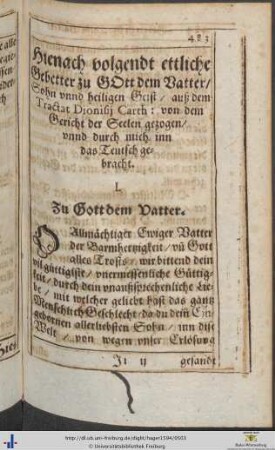 483
Hienach volgendt ettliche
Gebetter zu GOtt dem Vatter/
Sohn vnnd heiligen Geist/ auß dem
Tractat Dionisij Carth: von dem
Gericht der Seelen gezogen/
vnnd durch mich inn
das Teutsch ge-
bracht.
I.
Zu Gott dem Vatter.
O Allmächtiger Ewiger Vatter
der Barmhertzigkeit/ vñ Gott
alles Trosts/ wir bitten dein
vil güttigiste/ vnermessenliche Güttig-
keit/ durch dein vnaußsprechenliche Lie-
be/ mit welcher geliebt hast das gantz
Menschlich Geschlecht/ da du dein Ein-
gebornen allerliebsten Sohn/ inn dise
Welt/ von wegen vnser Erlösung
Ii ij
gesandt
http://dl.ub.uni-freiburg.de/diglit/hager1594/0503
© Universitätsbibliothek Freiburg
Baden-Württemberg